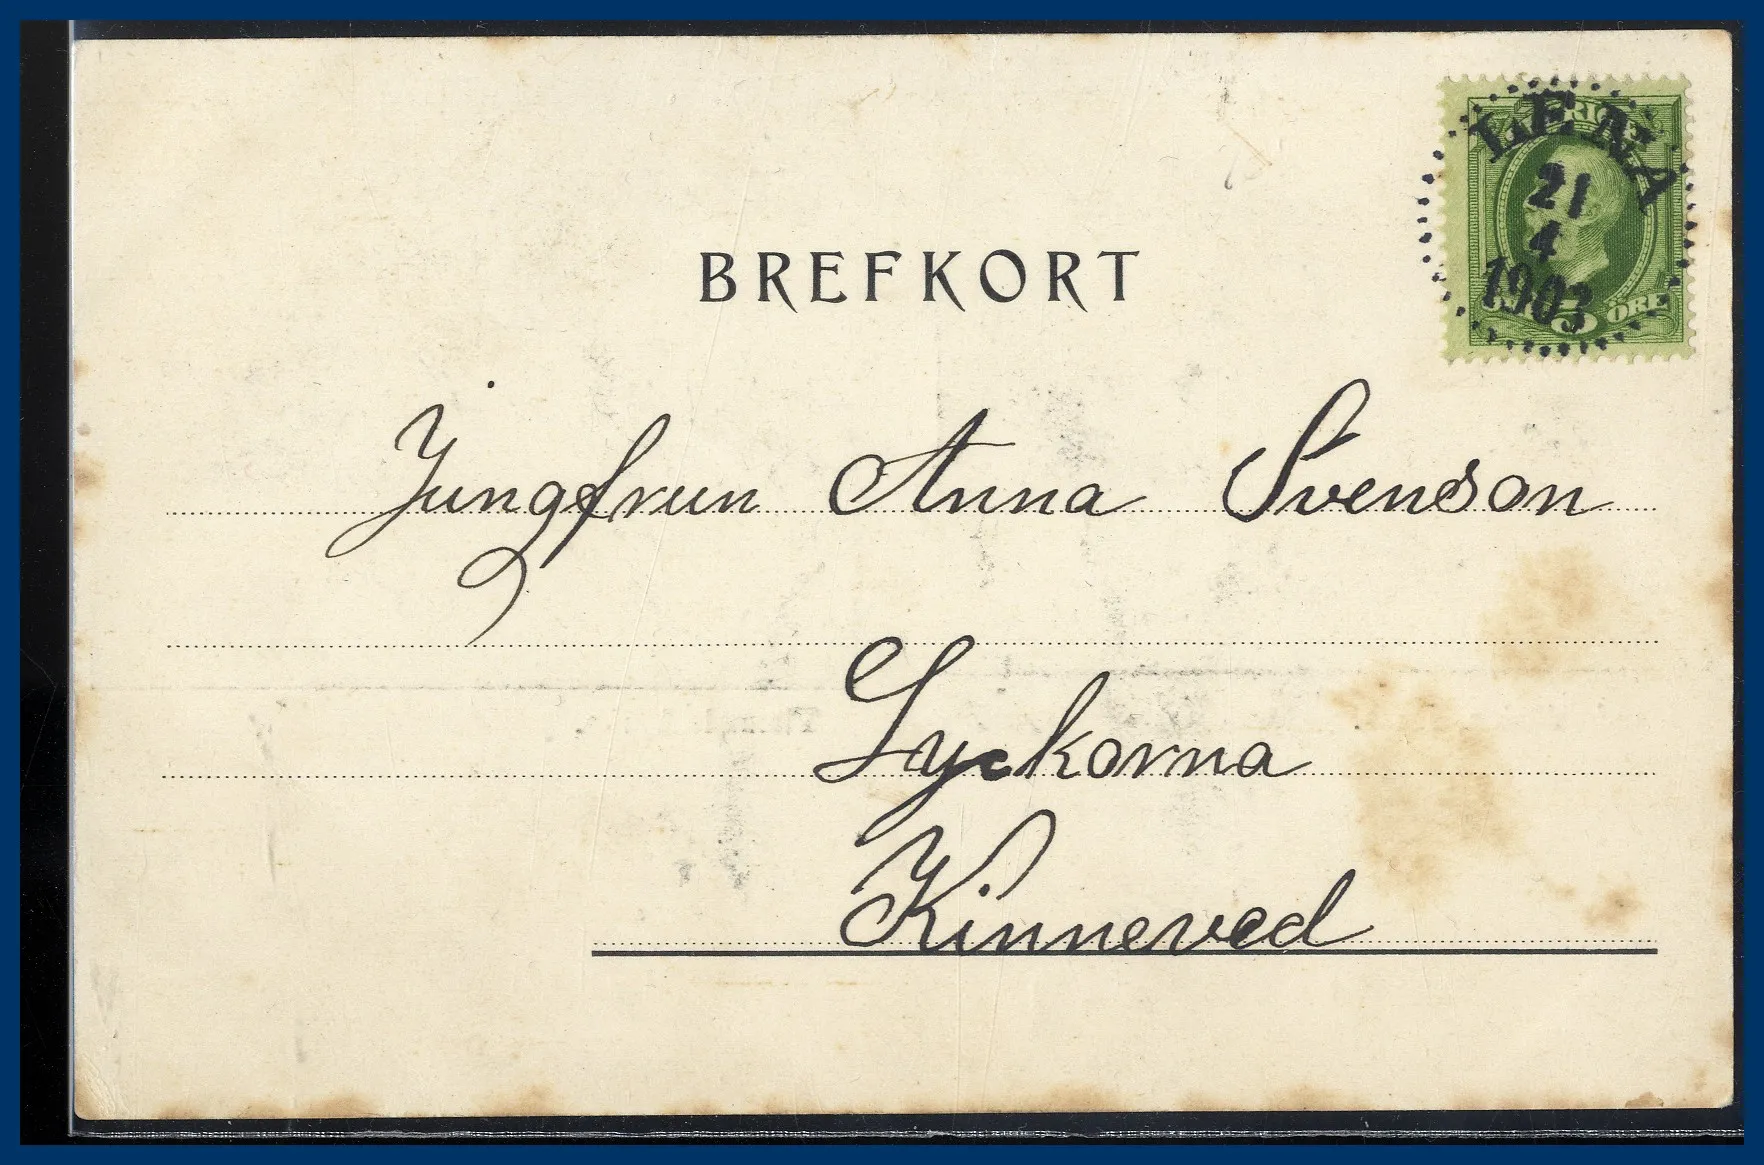 SVERIGE
LENA
21
4
1903
5 ÖRE
BREFKORT
Jungfrun Anna Svenson
Lyckorna
Kinneved